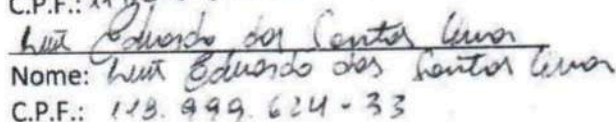 C.P.F.: 11
Luiz Eduardo dos Santos Lima
Nome: Luiz Eduardo dos Santos Lima
C.P.F.: 119.999.624-33